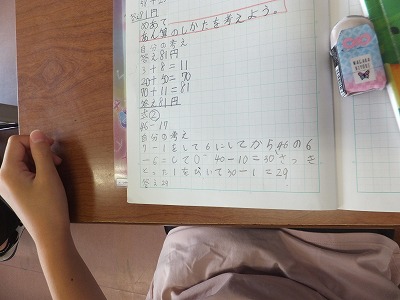 答え81円
めあて
あん算のしかたを考えよう。
自分の考え
答え81円
3+8=11
20+50=70
70+11=81
答え81円
式②
46-17
自分の考え
7-1をして6にしてから46の6
-6をして0 40-10=30さっき
とった1をひいて30-1=29
答え29